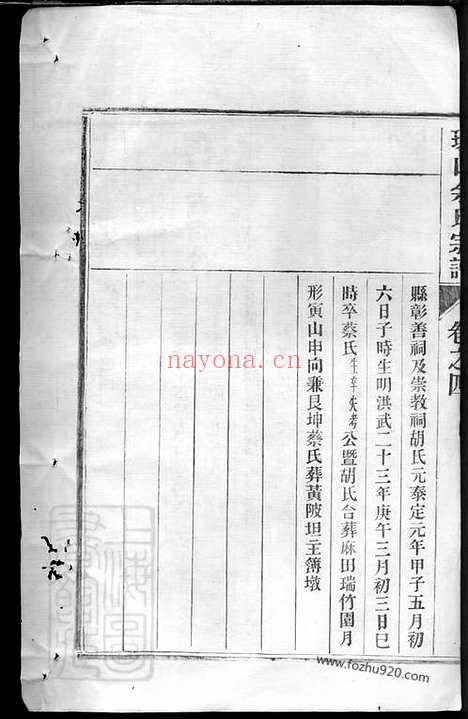 余氏宗譜
卷之四
縣彰善祠及崇教祠胡氏元泰定元年甲子五月初
六日子時生明洪武二十三年庚午三月初三日巳
時卒蔡氏生卒失考公暨胡氏合葬麻田瑞竹園月
形寅山申向兼艮坤蔡氏葬黃陂坦主簿墩
nayona.cn
www.fozhu920.com